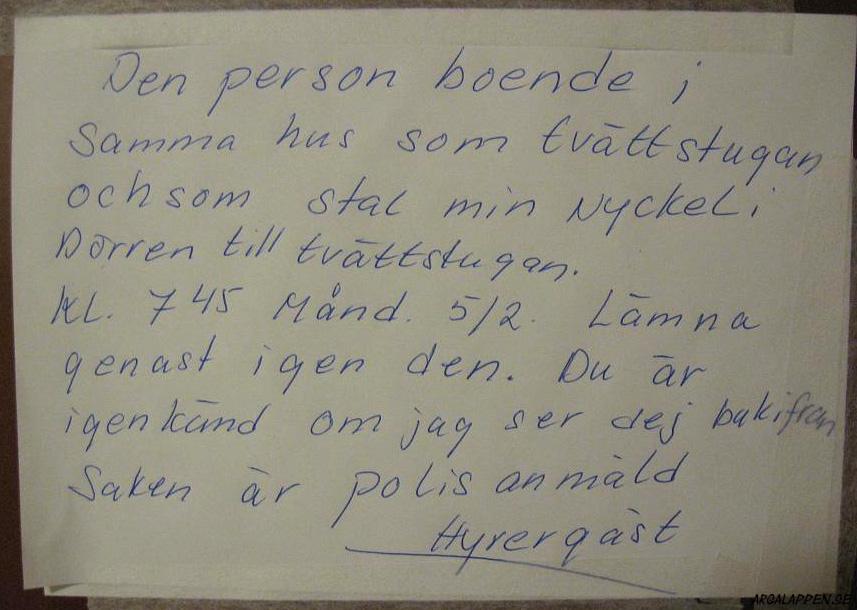 Den person boende i
samma hus som tvättstugan
och som stal min nyckel i
Dörren till tvättstugan.
Kl. 7 45 Månd. 5/2. Lämna
genast igen den. Du är
igenkänd om jag ser dej bakifrån
Saken är polis anmäld
Hyrergäst
ARGALAPPEN.SE